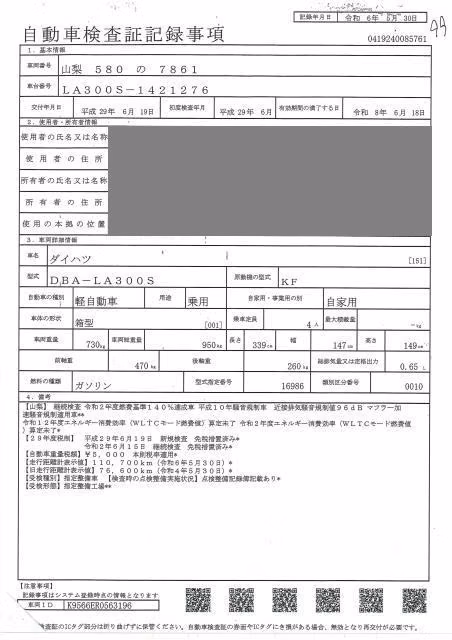 記録年月日 令和 6年 5月 30日
99
自動車検査証記録事項
0419240085761
1. 基本情報
車両番号 山梨 580 の 7861
車台番号 LA300S-1421276
交付年月日 平成 29年 6月 19日 初度検査年月 平成 29年 6月 有効期間の満了する日 令和 8年 6月 18日
2. 使用者・所有者情報
使用者の氏名又は名称
使用者の住所
所有者の氏名又は名称
所有者の住所
使用の本拠の位置
3. 車両詳細情報
車名 ダイハツ [151]
型式 DBA-LA300S 原動機の型式 KF
自動車の種別 軽自動車 用途 乗用 自家用・事業用の別 自家用
車体の形状 箱型 [001] 乗車定員 4人 最大積載量 -kg
車両重量 730kg 車両総重量 950kg 長さ 339cm 幅 147cm 高さ 149cm
前軸重 470kg 後軸重 260kg 総排気量又は定格出力 0.65 L
燃料の種類 ガソリン 型式指定番号 16986 類別区分番号 0010
4. 備考
【山梨】 継続検査 令和2年度燃費基準140%達成車 平成10年騒音規制車 近接排気騒音規制値96dB マフラー加
速騒音規制適用車**
令和12年度エネルギー消費効率(WLTCモード燃費値)算定未了 令和2年度エネルギー消費効率(WLTCモード燃費値
)算定未了*
【29年度税制】 平成29年6月19日 新規検査 免税措置済み*
令和2年6月15日 継続検査 免税措置済み*
【自動車重量税額】¥5,000 本則税率適用*
【走行距離計表示値】110,700km(令和6年5月30日)*
【旧走行距離計表示値】76,600km(令和4年5月30日)*
【受検種別】指定整備車 【検査時の点検整備実施状況】点検整備記録簿記載あり*
【受検形態】指定整備工場**
【注意事項】
記録事項はシステム登録時点の情報となります
車両ID K9566ER0563196
検査証のICタグ部分は折り曲げずに保管ください。自動車検査証の券面やICタグにき損がある場合、無効となり再交付が必要です。